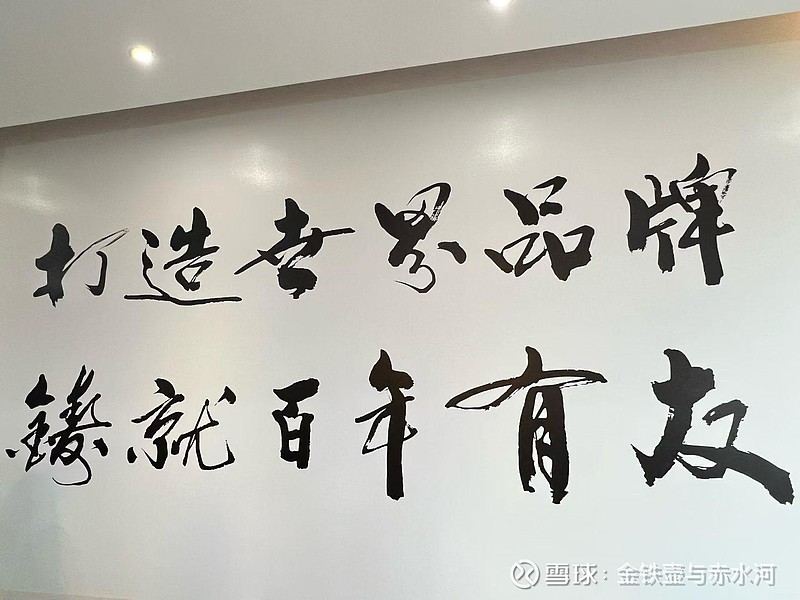 打造世界品牌
鑄就百年有友
雪球：金铁壶与赤水河